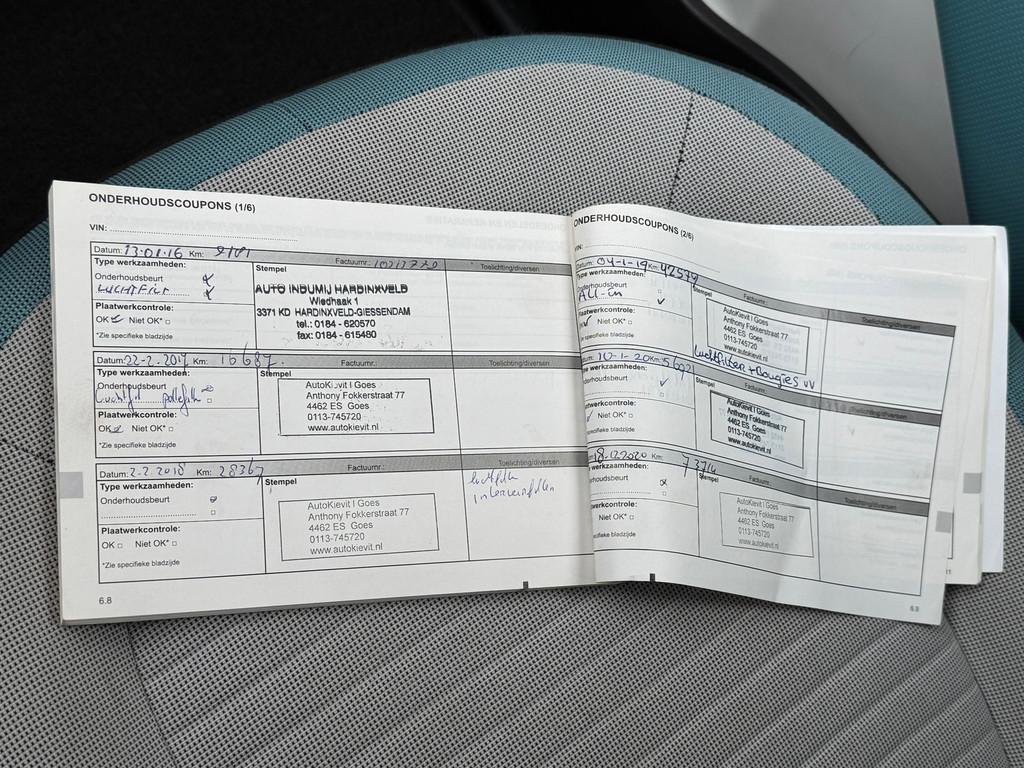 ONDERHOUDSCOUPONS (1/6)
VIN:
Datum: 13-01-16 Km:
Factuurnr.:
Toelichting/diversen
Type werkzaamheden:
Onderhoudsbeurt
LUCHTFILT
Plaatwerkcontrole:
OK Niet OK*
*Zie specifieke bladzijde
Stempel
AUTO INDUMIJ HARDINXVELD
Wiedhaak 1
3371 KD HARDINXVELD-GIESSENDAM
tel.: 0184 - 620570
fax: 0184 - 615480
Datum: 22-2. 2017 Km: 16687
Factuurnr.:
Toelichting/diversen
Type werkzaamheden:
Onderhoudsbeurt
Luchtfilt
Plaatwerkcontrole:
OK Niet OK*
*Zie specifieke bladzijde
Stempel
AutoKievit I Goes
Anthony Fokkerstraat 77
4462 ES Goes
0113-745720
www.autokievit.nl
Datum: 2-2.2018 Km: 28367
Factuurnr.:
Toelichting/diversen
Type werkzaamheden:
Onderhoudsbeurt
Plaatwerkcontrole:
OK Niet OK*
*Zie specifieke bladzijde
Stempel
AutoKievit I Goes
Anthony Fokkerstraat 77
4462 ES Goes
0113-745720
www.autokievit.nl
luchtfilter
interieurfilter
6.8
ONDERHOUDSCOUPONS (2/6)
VIN:
Datum: 04-1-19 Km: 42579
Factuurnr.:
Toelichting/diversen
Type werkzaamheden:
Onderhoudsbeurt
All-in
Plaatwerkcontrole:
Niet OK*
specifieke bladzijde
Stempel
AutoKievit I Goes
Anthony Fokkerstraat 77
4462 ES Goes
0113-745720
www.autokievit.nl
Luchtfilter + Bougies VV
10-1-20 Km: 56921
Type werkzaamheden:
Onderhoudsbeurt
Plaatwerkcontrole:
Niet OK*
specifieke bladzijde
Stempel
AutoKievit I Goes
Anthony Fokkerstraat 77
4462 ES Goes
0113-745720
www.autokievit.nl
18-12-2020 Km:
Factuurnr.:
Toelichting/diversen
werkzaamheden:
Niet OK*
Stempel
AutoKievit I Goes
Anthony Fokkerstraat 77
4462 ES Goes
0113-745720
www.autokievit.nl
6.9